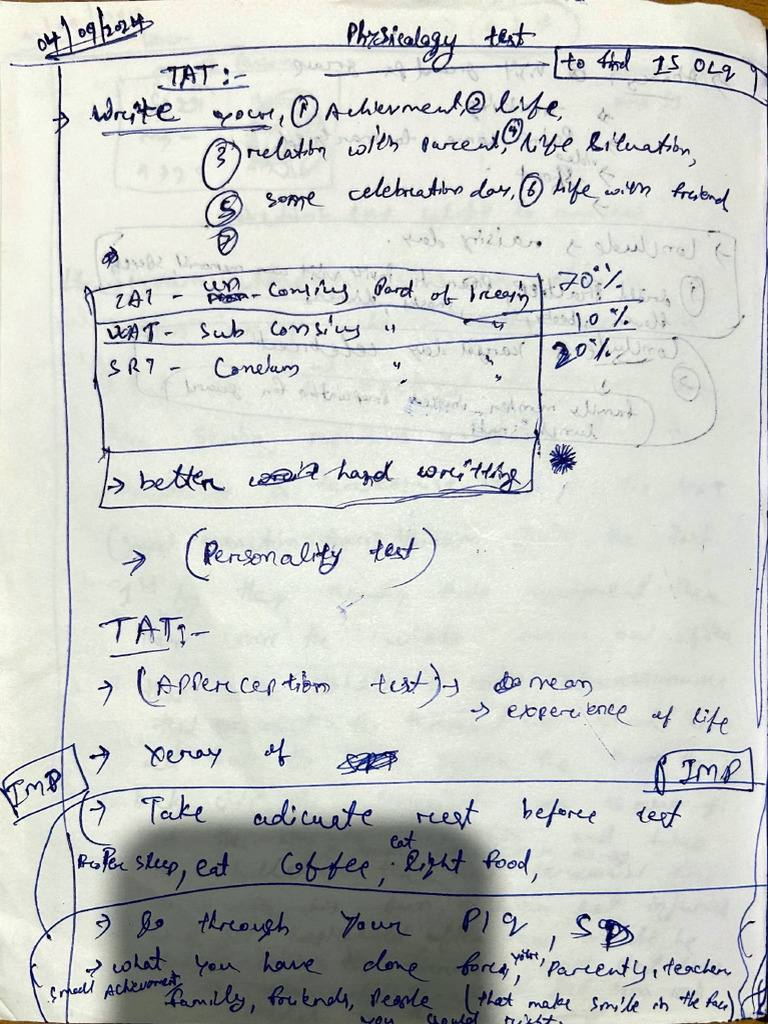 04/09/2024
Physicology test
to find 15 OLQ
TAT :-
→ Write your, ① Achievment, ② life,
③ relation with parent, ④ life situation,
⑤ some celebration day, ⑥ life with friend
⑦
TAT - un Consius Pard of breain 70%
WAT - Sub Consius " " 10%
SRT - Consius " " 20%
→ better hand writting
→ (Personality test)
TAT :-
→ (Appereception test) → mean
→ experience of life
→ xeray of
IMP
IMP
→ Take adicuate rest before test
Proper sleep, eat Coffee, eat light food,
→ Go through your PIQ, SD
→ what you have done for, your, Parently, teacher
small Achievment, familly, friends, People (that make smile in the face)
you should right